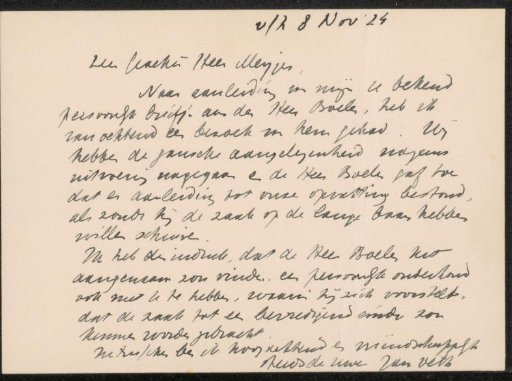 8 Nov 24
Zeer Geachte Heer Meyjes,
Naar aanleiding van mijn U bekend
persoonlijk briefje aan den Heer Boelen, heb ik
van ochtend een bezoek van hem gehad. Wij
hebben de gansche aangelegenheid nogeens
uitvoerig nagegaan en de Heer Boelen gaf toe
dat er aanleiding tot onze opvatting bestond,
als zoude hij de zaak op de lange baan hebben
willen schuiven.
Ik heb den indruk, dat de Heer Boelen het
aangenaam zou vinden een persoonlijk onderhoud
ook met U te hebben, waarin hij zich voorstelt,
dat de zaak tot een bevredigend einde zou
kunnen worden gebracht.
Intusschen ben ik hoogachtend en vriendschappelijk
steeds de uwe Jan Veth